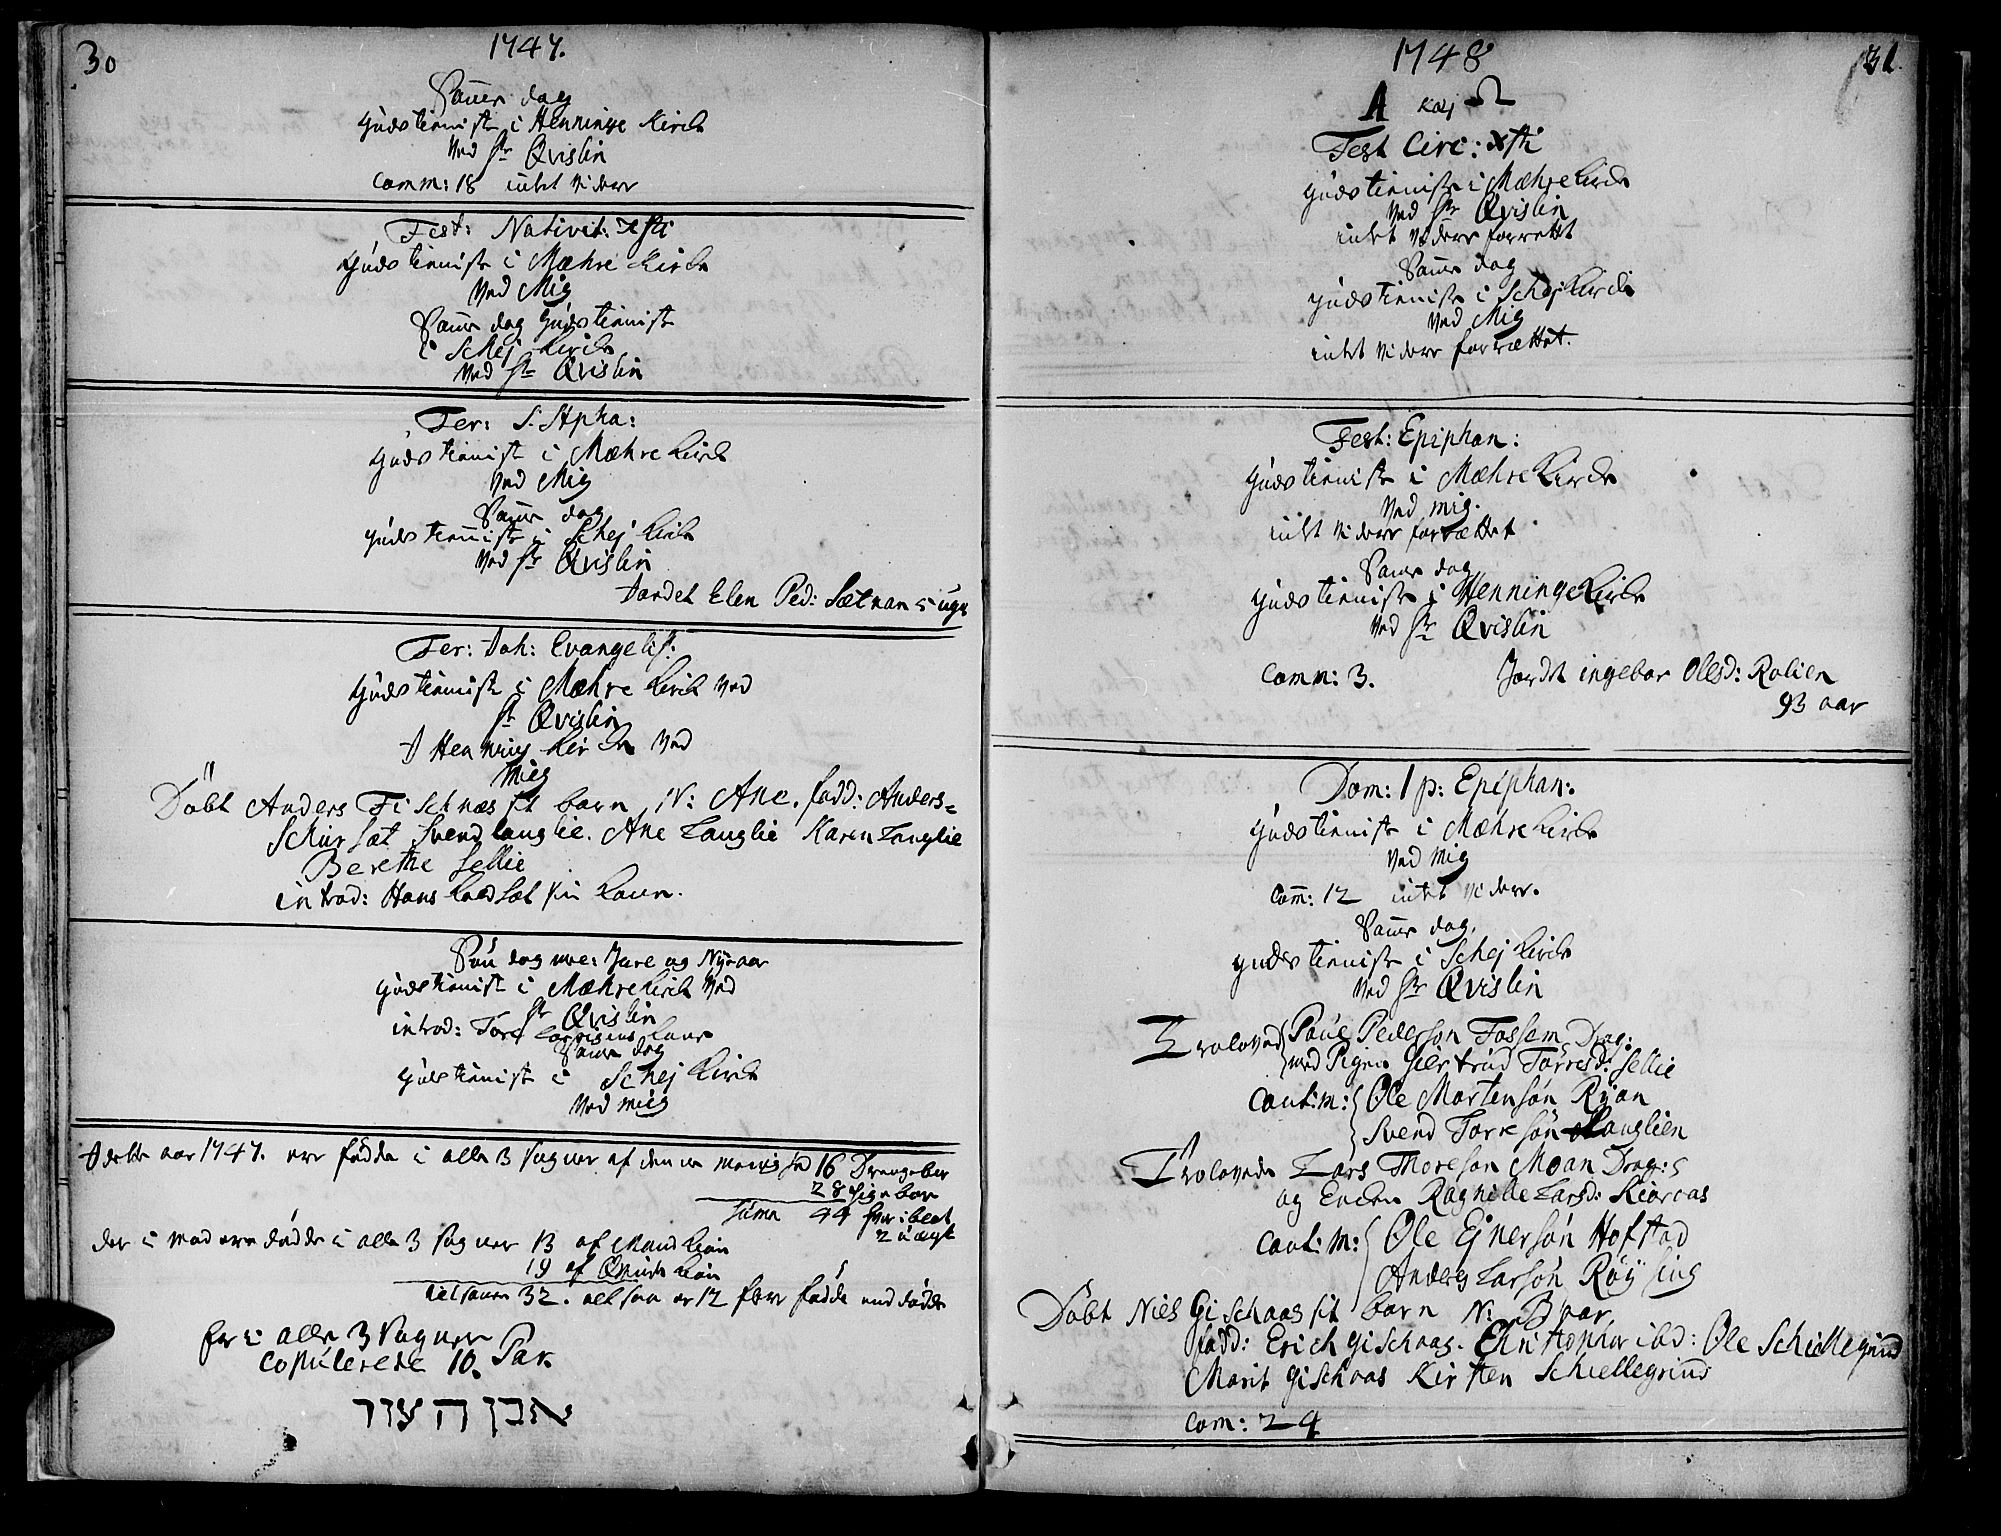 30
1747.
Sam̅e dag
Gudstienist i Henninge Kirch
Ved Hr Qvislin
Comm: 18 intet videre
Fest: Nativit: Xsti
Gudstieniste i Mæhre Kirche
Ved Mig
Sam̅e dag Gudstienist
i Schej Kirche
Ved Hr Qvislin
Fer: S. Stpha:
Gudstienist i Mæhre Kirch
Ved Mig
Sam̅e dag
Gudstienist i Schej Kirch
Ved Hr Qvislin
Jordet Elen Ped: Sætnan 5 ugr
Fer: Joh: Evangelist:
Gudstienist i Mæhre Kirch ved
Hr Qvislin
I Henning Kirche ved
mig
Döbt Anders Fischnæs sit barn, N: Ane. fadd: Anders
Schiursæt Svend Langlie. Ane Langlie Karen Langlie
Berethe Sellie
introd: Hans sæt sin Kone.
Søndag mel: Jule og Nyeaar
Gudstienist i Mæhre Kirch Ved
Hr Qvislin
introd: Tore Kone
Sam̅e dag
Gudstienist i Schej Kirch
Ved mig
I dette aar 1747. ere födde i alle 3 Sogner af denne menighed 16 Drengebør
28 Pigebør
Suma 44 hvor iblant
2 uægt
der i mod ere dödde i alle 3 Sogner 13 af Mandkiön
19 af Qvindekiön
tilsamen 32. altsaa er 12 flere födde end dödde
her i alle 3 Sogner
Copulerede 10. Par.
אבן העזר
1748
31.
A καὶ Ω
Fest Circ: Xsti
Gudstieniste i Mæhre Kirch
Ved Hr Qvislin
intet videre forrettet
Sam̅e dag
Gudstieniste i Schej Kirche
Ved Mig
intet videre forrættet.
Fest: Epiphan:
Gudstieniste i Mæhre Kirche
Ved mig.
intet videre forrættet
Sam̅e dag
Gudstieniste i Henninge Kirche
Ved Hr Qvislin
Comm: 3. Jordt ingebor Olsd: Rolien
93 aar
Dom: 1 p: Epiphan:
Gudstieniste i Mæhre Kirche
Ved mig
Com̅: 12 intet videre.
Sam̅e dag.
Gudstieniste i Schej Kirche
Ved Hr Qvislin
Troloved Poul Pederson Fossem Drag:
med Pigen Giertrud Torresd: Sellie
Caut: m: Ole Mortensön Ryan
Svend Toresön Langlien
Trolovede Lars Thoreson Moan Drag:
og Enchen Ragnilde Larsd: Kioraas
Caut: m: Ole Ejnersön Hofstad
Anders Larsön Röysing
Döbt Niels Gischaas sit barn N: Boar
fadd: Erich Gischaas. Christopher ibd: Ole Schiellegrind
Marit Gischaas Kirsten Schiellegrind
Com: 24